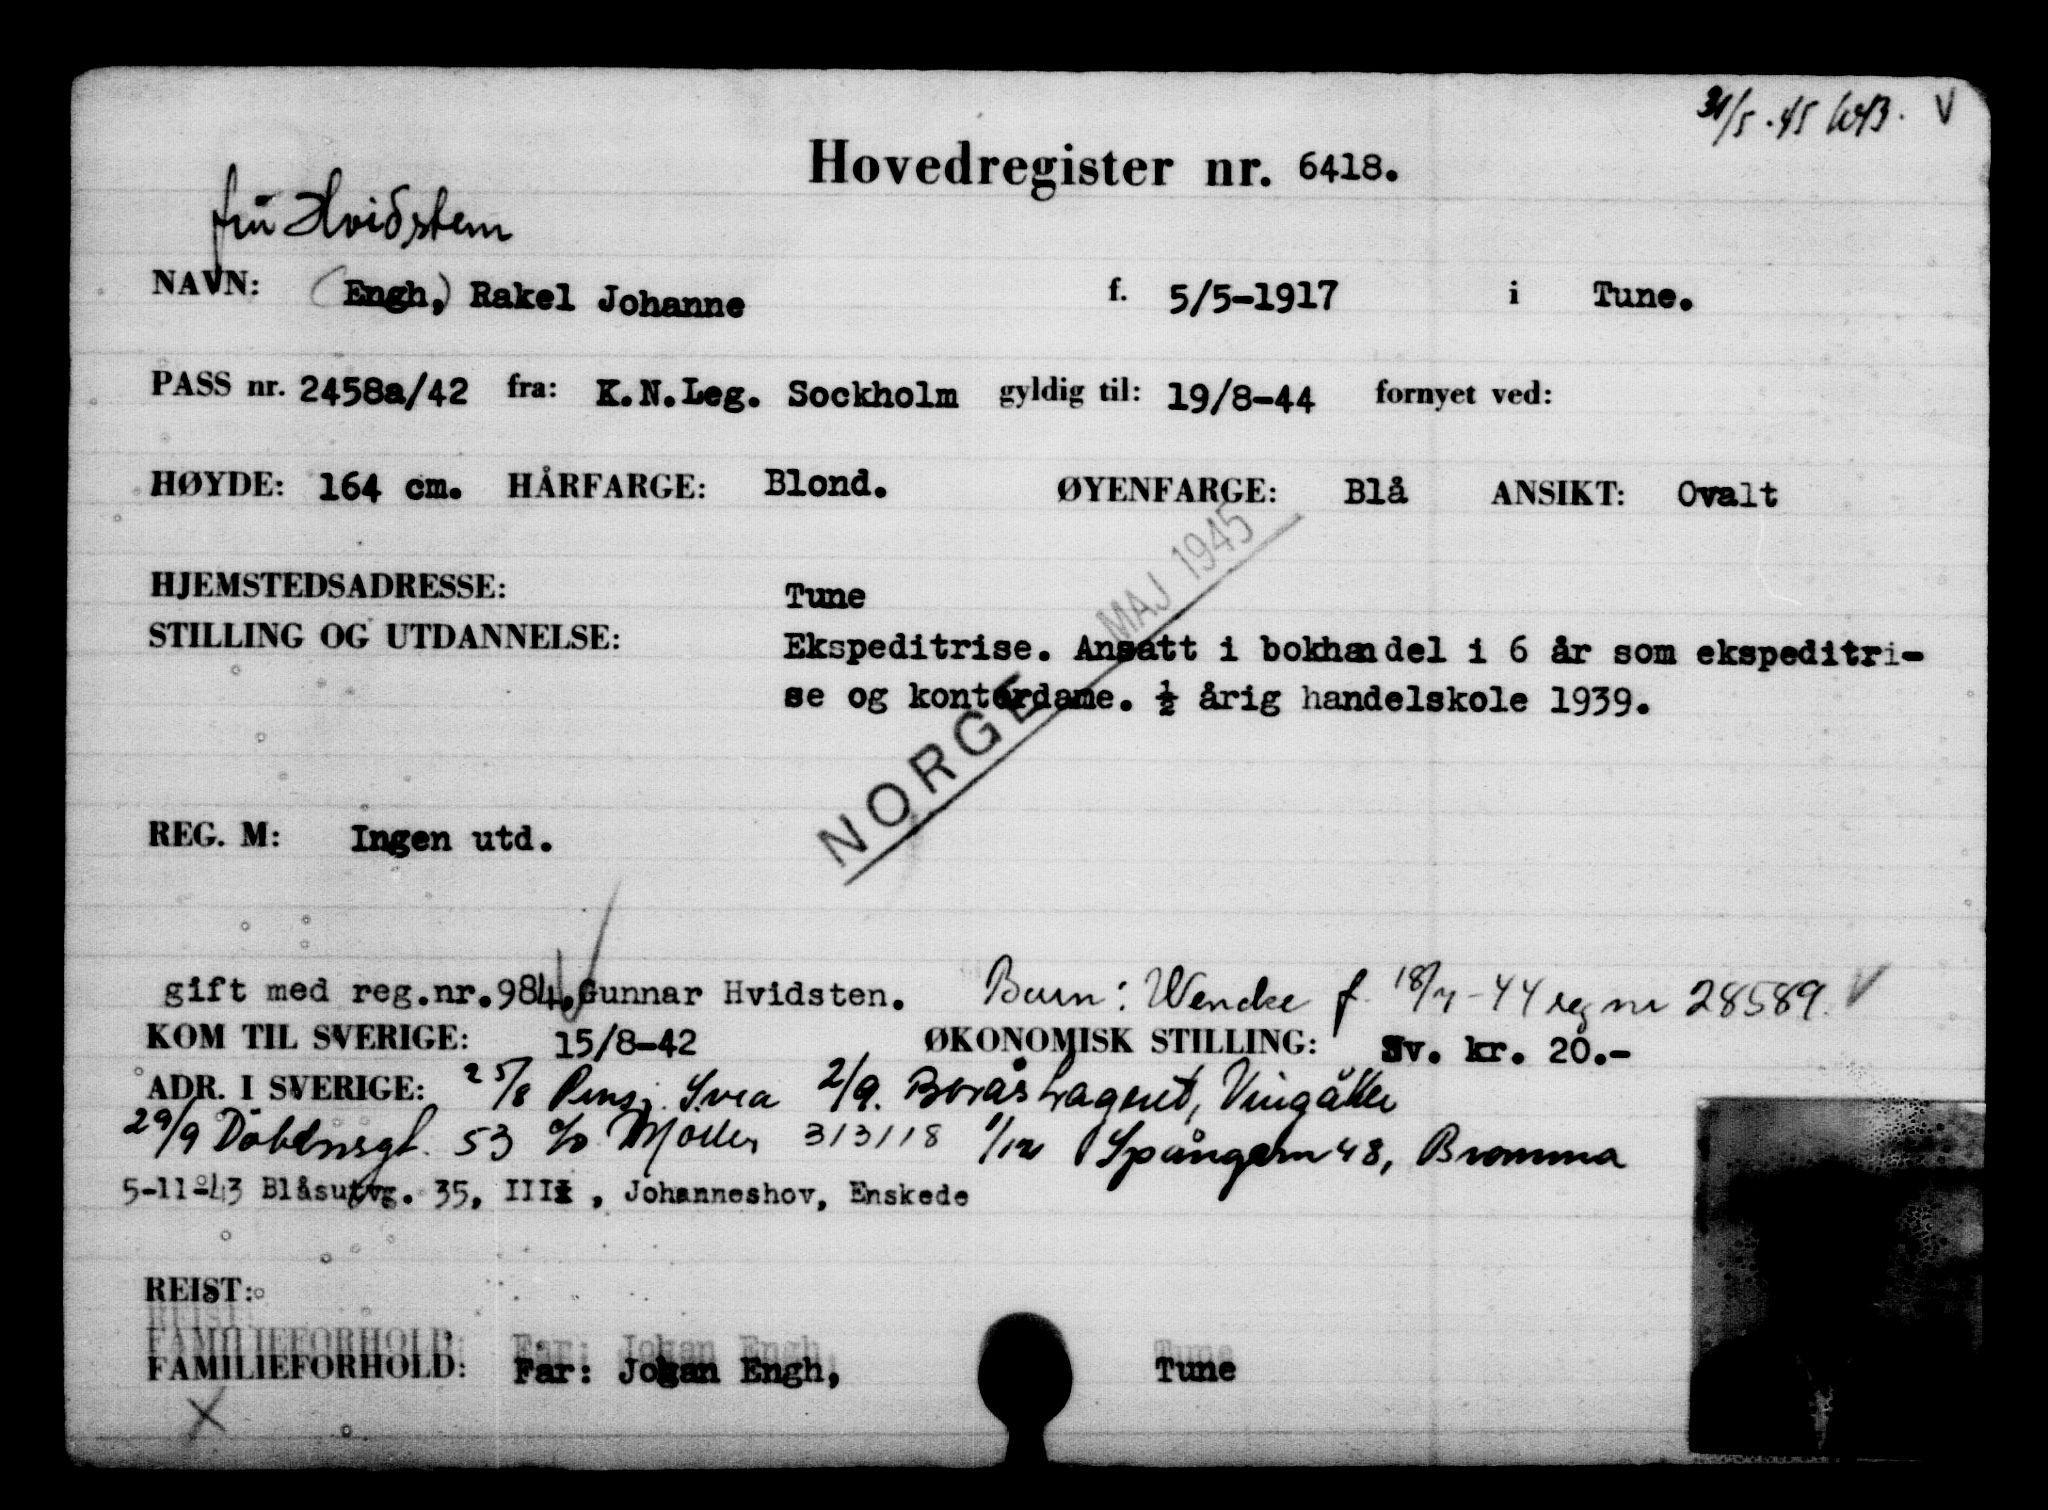 31/5.45
V
Hovedregister nr. 6418.
fru Hvidstem
NAVN: (Engh,) Rakel Johanne f. 5/5-1917 i Tune.
PASS nr. 2458a/42 fra: K.N.Leg. Sockholm gyldig til: 19/8-44 fornyet ved:
HØYDE: 164 cm. HÅRFARGE: Blond. ØYENFARGE: Blå ANSIKT: Ovalt
HJEMSTEDSADRESSE: Tune
STILLING OG UTDANNELSE: Ekspeditrise. Ansatt i bokhandel i 6 år som ekspeditri-
se og kontordame. ½ årig handelskole 1939.
NORGE MAJ 1945
REG. M: Ingen utd.
gift med reg.nr.984,Gunnar Hvidsten. Barn: Wencke f. 18/4-44 reg nr 28589. V
KOM TIL SVERIGE: 15/8-42 ØKONOMISK STILLING: Sv. kr. 20.-
ADR. I SVERIGE: 25/8 Pensj. Svea 2/9. Boråshageret, Vingåker
29/9 Döbelnsgt. 53 c/o Møller 313118 1/12 Spångavn 48, Bromma
5-11-43 Blåsutvg. 35, III, Johanneshov, Enskede
REIST:
FAMILIEFORHOLD: Far: Johan Engh, Tune